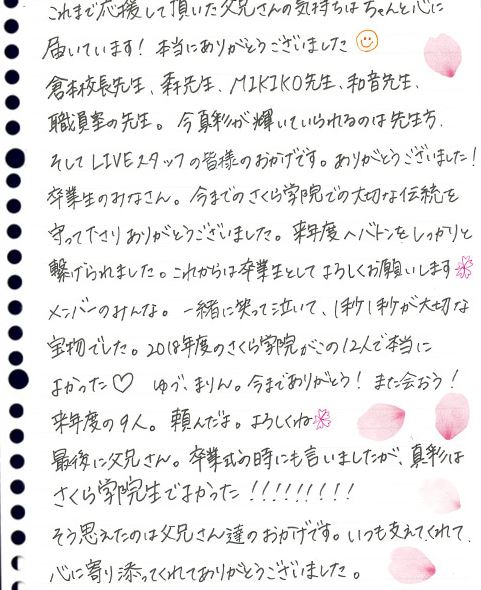 これまで応援して頂いた父兄さんの気持ちはちゃんと心に
届いています！本当にありがとうございました
倉本校長先生、森先生、MIKIKO先生、和音先生、
職員室の先生。今真彩が輝いていられるのは先生方、
そしてLIVEスタッフの皆様のおかげです。ありがとうございました！
卒業生のみなさん。今までのさくら学院での大切な伝統を
守って下さりありがとうございました。来年度へバトンをしっかりと
繋げられました。これからは卒業生としてよろしくお願いします
メンバーのみんな。一緒に笑って泣いて、1秒1秒が大切な
宝物でした。2018年度のさくら学院がこの12人で本当に
よかった♡ ゆづ、まりん。今までありがとう！また会おう！
来年度の9人。頼んだよ。よろしくね
最後に父兄さん。卒業式の時にも言いましたが、真彩は
さくら学院生でよかった！！！！！！！！！
そう思えたのは父兄さん達のおかげです。いつも支えてくれて、
心に寄り添ってくれてありがとうございました。